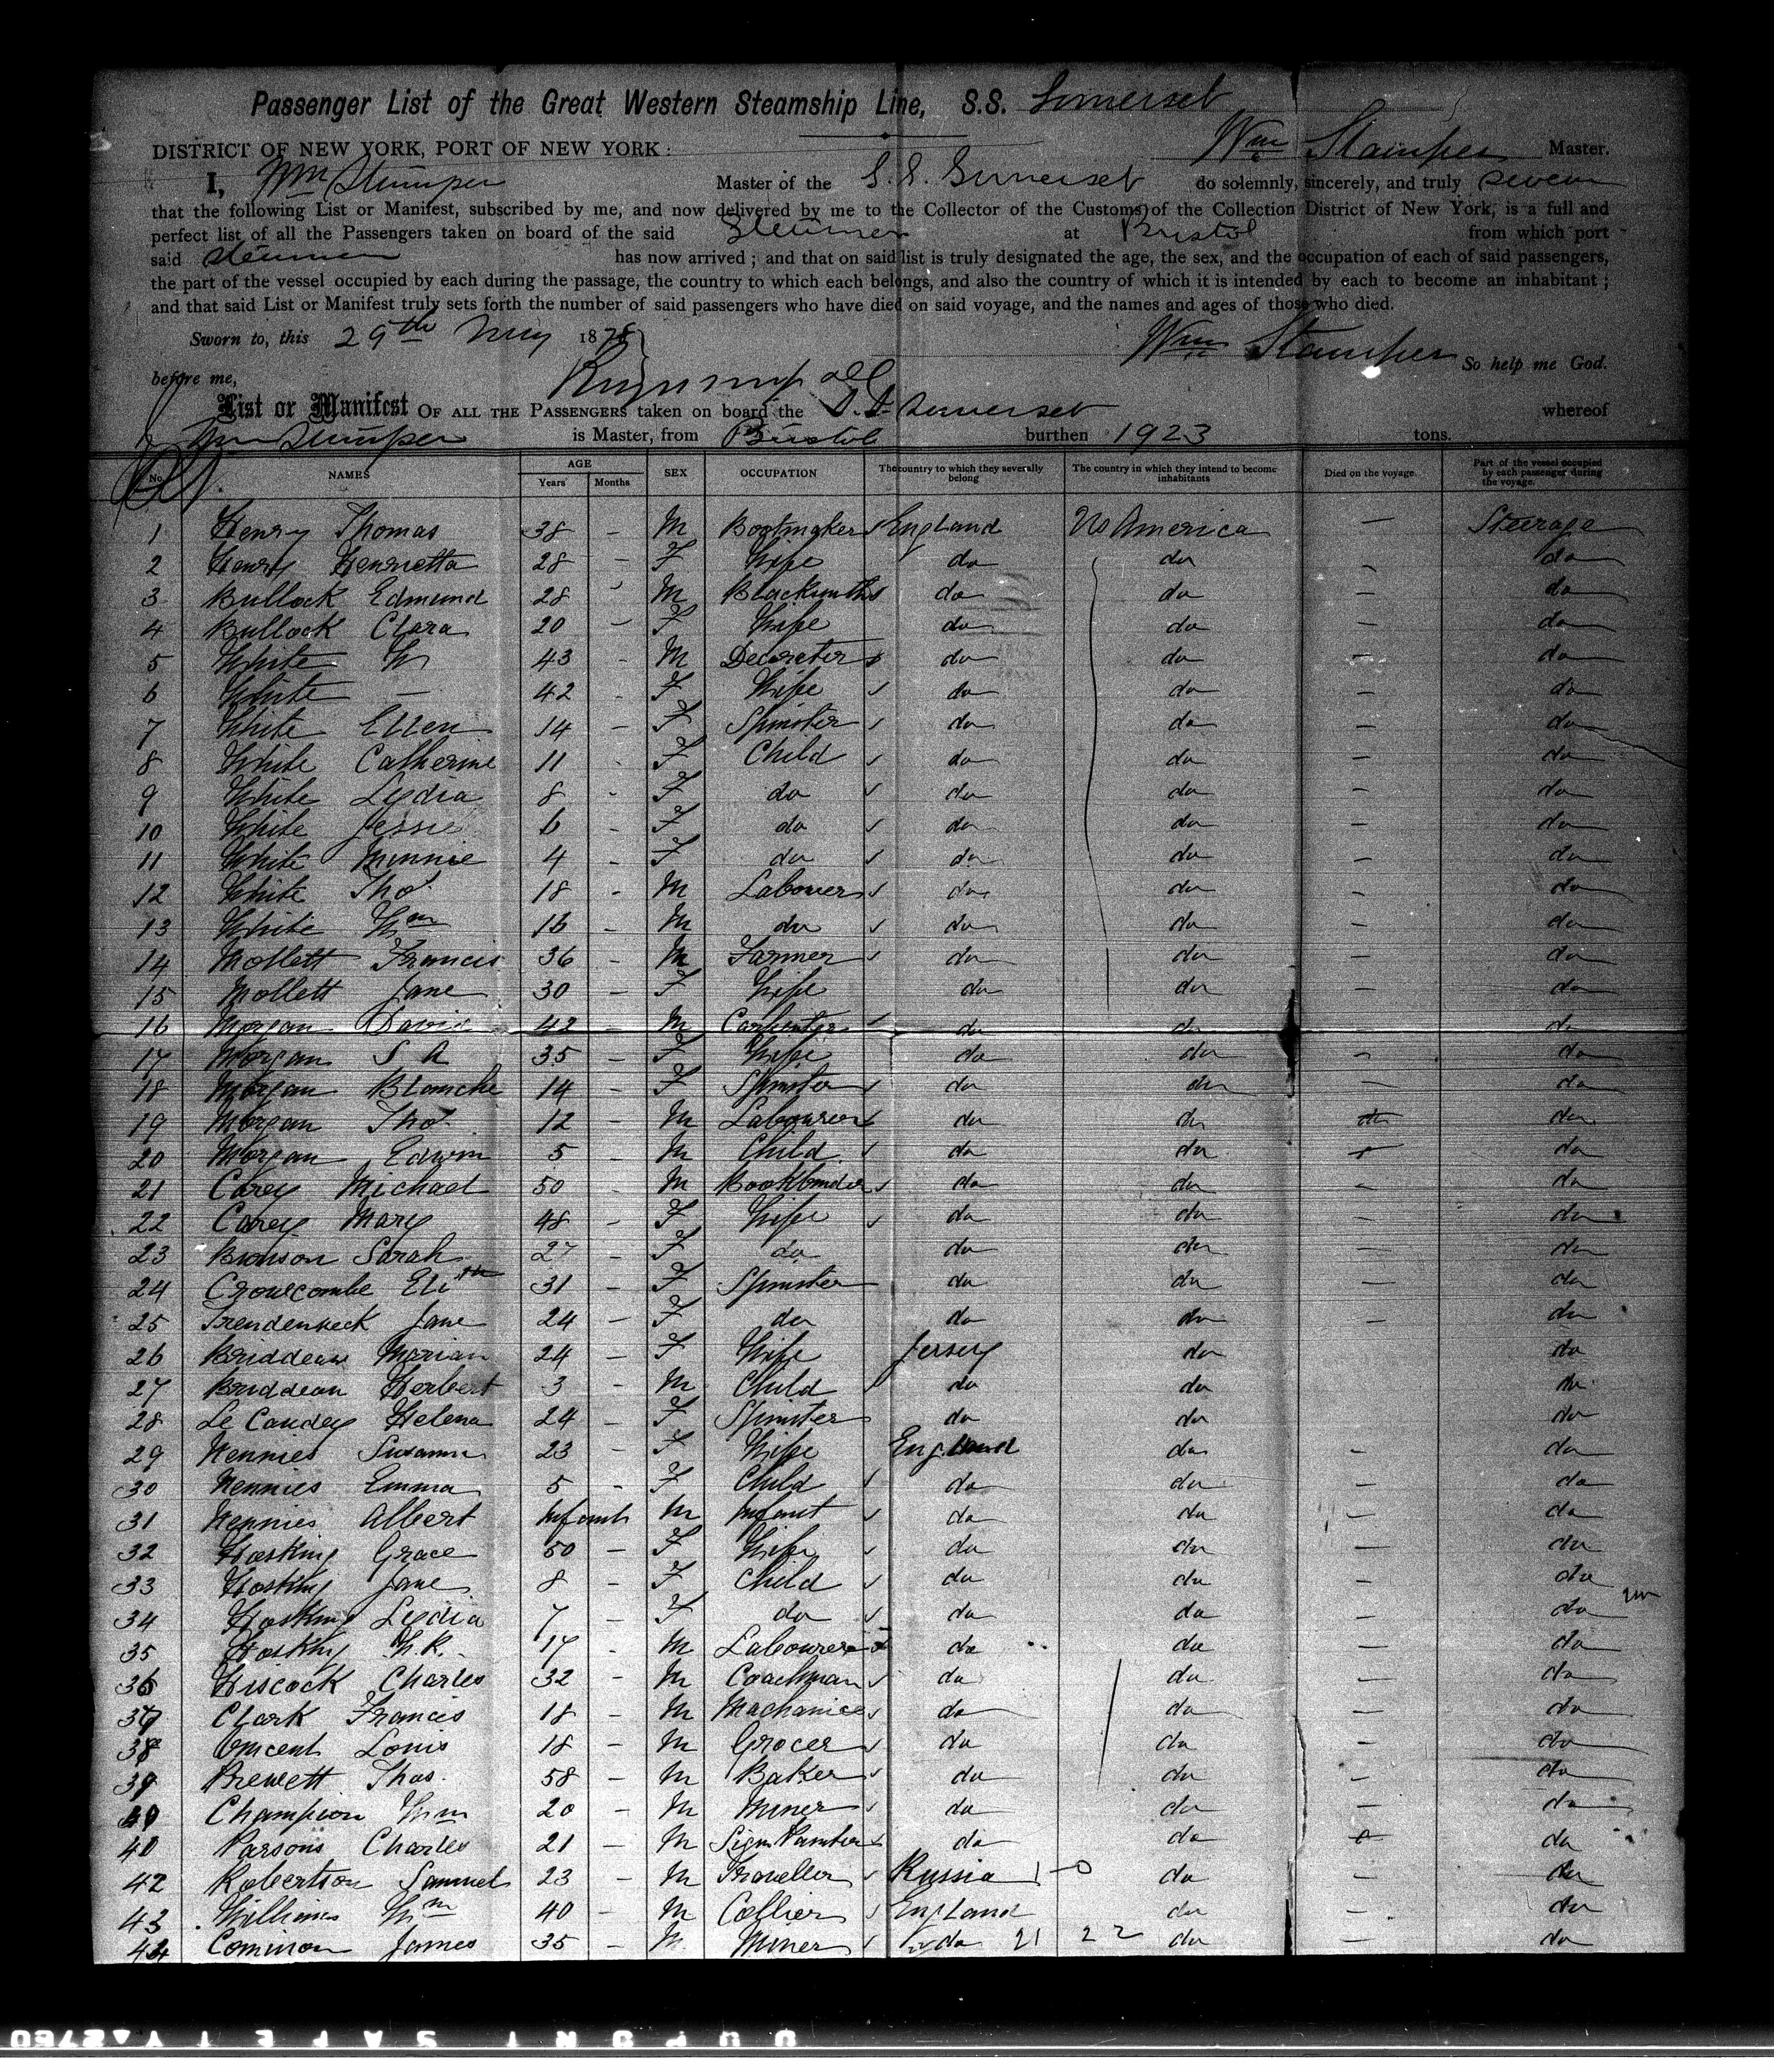 Passenger List of the Great Western Steamship Line, S.S. Somerset
DISTRICT OF NEW YORK, PORT OF NEW YORK: Wm Stamper Master.
I, Wm Stamper Master of the S.S. Somerset do solemnly, sincerely, and truly swear
that the following List or Manifest, subscribed by me, and now delivered by me to the Collector of the Customs of the Collection District of New York, is a full and
perfect list of all the Passengers taken on board of the said Steamer at Bristol from which port
said Steamer has now arrived; and that on said list is truly designated the age, the sex, and the occupation of each of said passengers,
the part of the vessel occupied by each during the passage, the country to which each belongs, and also the country of which it is intended by each to become an inhabitant;
and that said List or Manifest truly sets forth the number of said passengers who have died on said voyage, and the names and ages of those who died.
Sworn to, this 29th May 1878 Wm Stamper So help me God.
before me,
List or Manifest OF ALL THE PASSENGERS taken on board the S.S. Somerset whereof
Wm Stamper is Master, from Bristol burthen 1923 tons.
No. NAMES AGE Years Months SEX OCCUPATION The country to which they severally belong The country in which they intend to become inhabitants Died on the voyage. Part of the vessel occupied by each passenger during the voyage.
1 Henry Thomas 38 - M Bootmaker England No America - Steerage
2 Henry Henrietta 28 - F Wife do do - do
3 Bullock Edmund 28 - M Blacksmith do do - do
4 Bullock Clara 20 - F Wife do do - do
5 White W 43 - M Decorator do do - do
6 White - 42 - F Wife do do - do
7 White Ellen 14 - F Spinster do do - do
8 White Catherine 11 - F Child do do - do
9 White Lydia 8 - F do do do - do
10 White Jessie 6 - F do do do - do
11 White Minnie 4 - F do do do - do
12 White Thos 18 - M Labourer do do - do
13 White Wm 16 - M do do do - do
14 Mollett Francis 36 - M Farmer do do - do
15 Mollett Jane 30 - F Wife do do - do
16 Morgan David 42 - M Carpenter do do - do
17 Morgan S A 35 - F Wife do do - do
18 Morgan Blanche 14 - F Spinster do do - do
19 Morgan Thos 12 - M Labourer do do do do
20 Morgan Edwin 5 - M Child do do - do
21 Carey Michael 50 - M Bookbinder do do - do
22 Carey Mary 48 - F Wife do do - do
23 Bronson Sarah 27 - F do do do - do
24 Crowcombe Elith 31 - F Spinster do do - do
25 Jane 24 - F do do do - do
26 Marian 24 - F Wife Jersey do do
27 Briddeau Herbert 3 - M Child do do do
28 Helena 24 - F Spinster do do do
29 Nennies Susanna 23 - F Wife England do - do
30 Nennies Emma 5 - F Child do do - do
31 Nennies Albert Infant M Infant do do - do
32 Hosking Grace 50 - F Wife do do - do
33 Hosking Jane 8 - F Child do do - do
34 Hosking Lydia 7 - F do do do - do
35 Hosking W.R. 17 - M Labourer do do - do
36 Hiscock Charles 32 - M Coachman do do - do
37 Clark Francis 18 - M Machanic do do - do
38 Vincent Louis 18 - M Grocer do do - do
39 Prewett Thos. 58 - M Baker do do - do
40 Champion Wm 20 - M Miner do do - do
40 Parsons Charles 21 - M Sign Painter do do - do
42 Robertson Samuel 23 - M Traveller Russia 1-0 do - do
43 Williams Wm 40 - M Collier England do - do
44 Common James 35 - M Miner do 21 22 do - do
DUPONT SAFETY